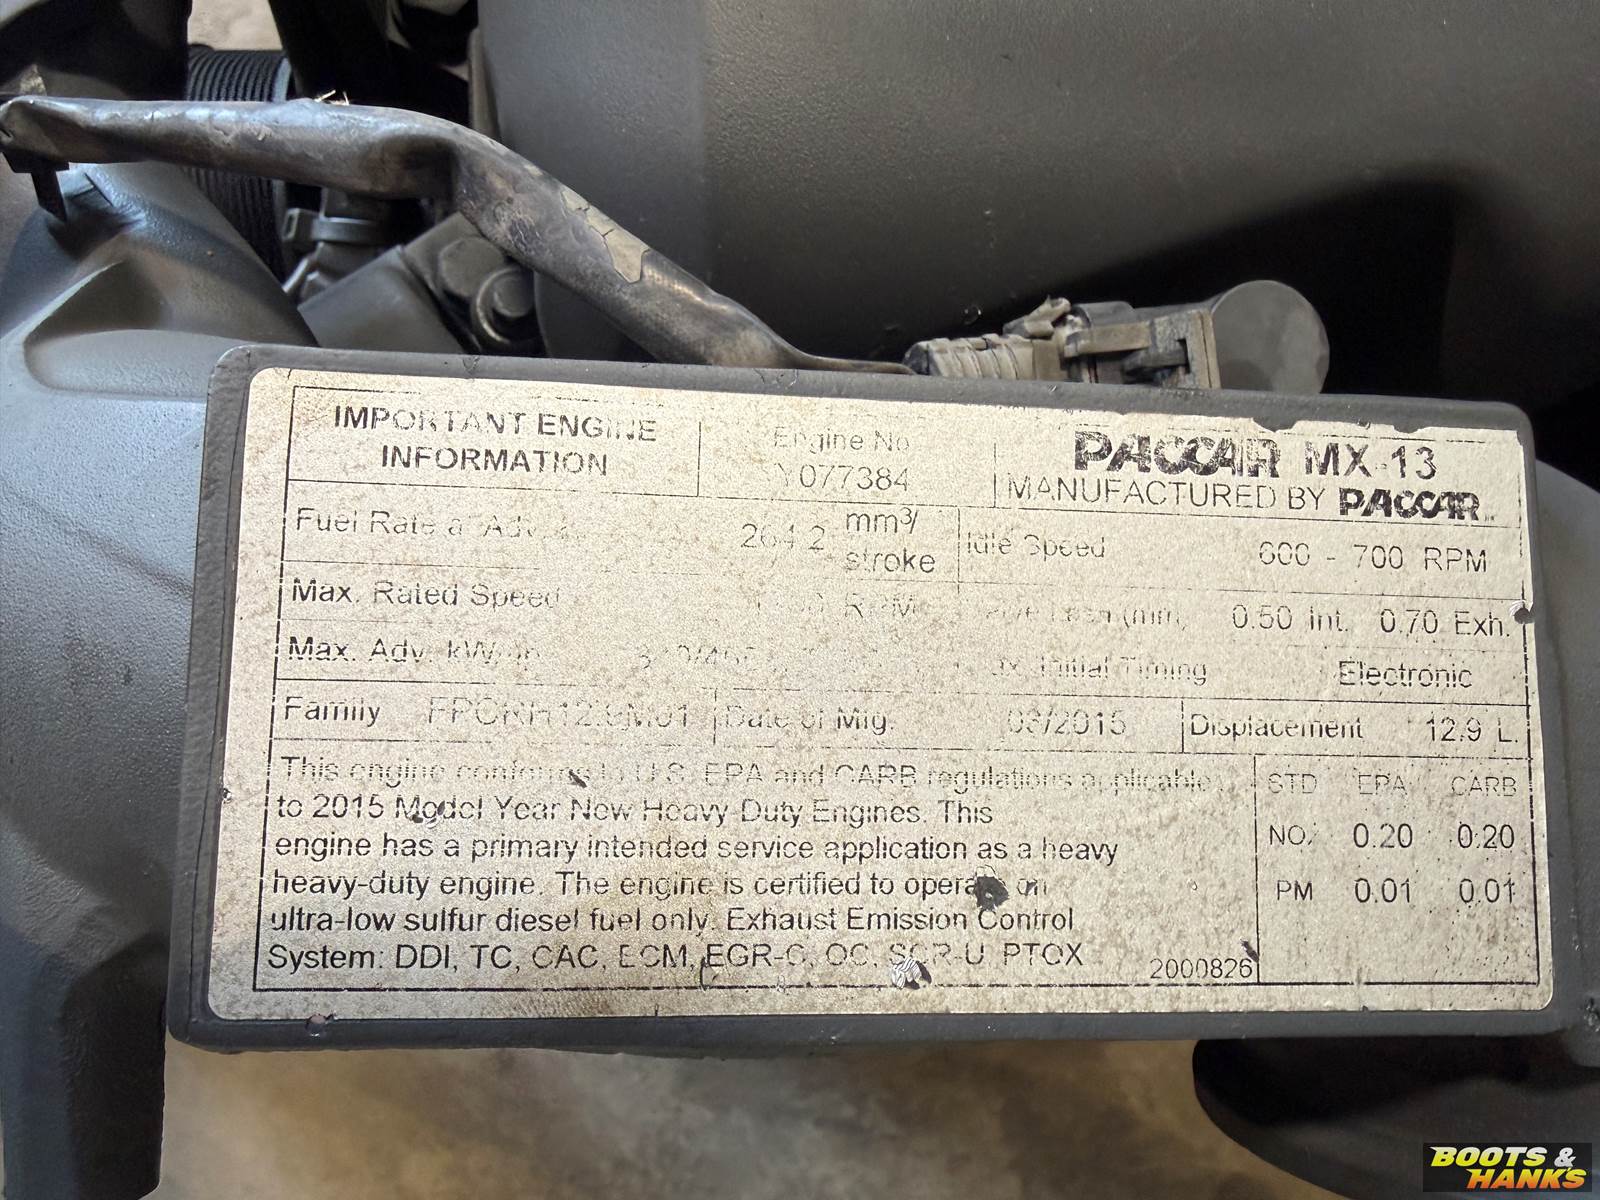 IMPORTANT ENGINE
INFORMATION
Engine No
Y077384
PACCAR MX-13
MANUFACTURED BY PACCAR
Fuel Rate at Adv. 264.2 mm³/
stroke
Idle Speed 600 - 700 RPM
Max. Rated Speed RPM
(mm) 0.50 Int. 0.70 Exh.
Max. Adv. kW/
Initial Timing Electronic
Family
Date of Mfg. 03/2015
Displacement 12.9 L.
This engine conforms to U.S. EPA and CARB regulations applicable
to 2015 Model Year New Heavy Duty Engines. This
engine has a primary intended service application as a heavy
heavy-duty engine. The engine is certified to operate on
ultra-low sulfur diesel fuel only. Exhaust Emission Control
System: DDI, TC, CAC, ECM, EGR-C, OC, SCR-U, PTOX
2000826
STD EPA CARB
NOx 0.20 0.20
PM 0.01 0.01
BOOTS &
HANKS